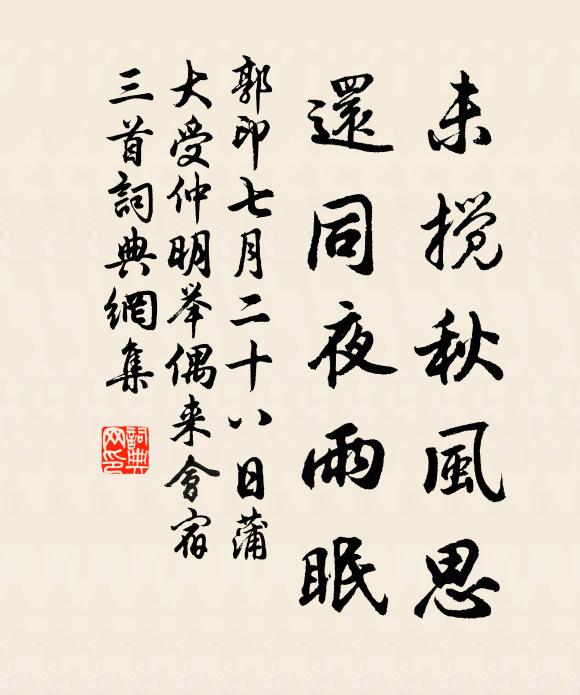 未搅秋風思
還同夜雨眠
郭印七月二十八日蒲
大受仲明举偶来會宿
三首詞典網集
詞典
网印